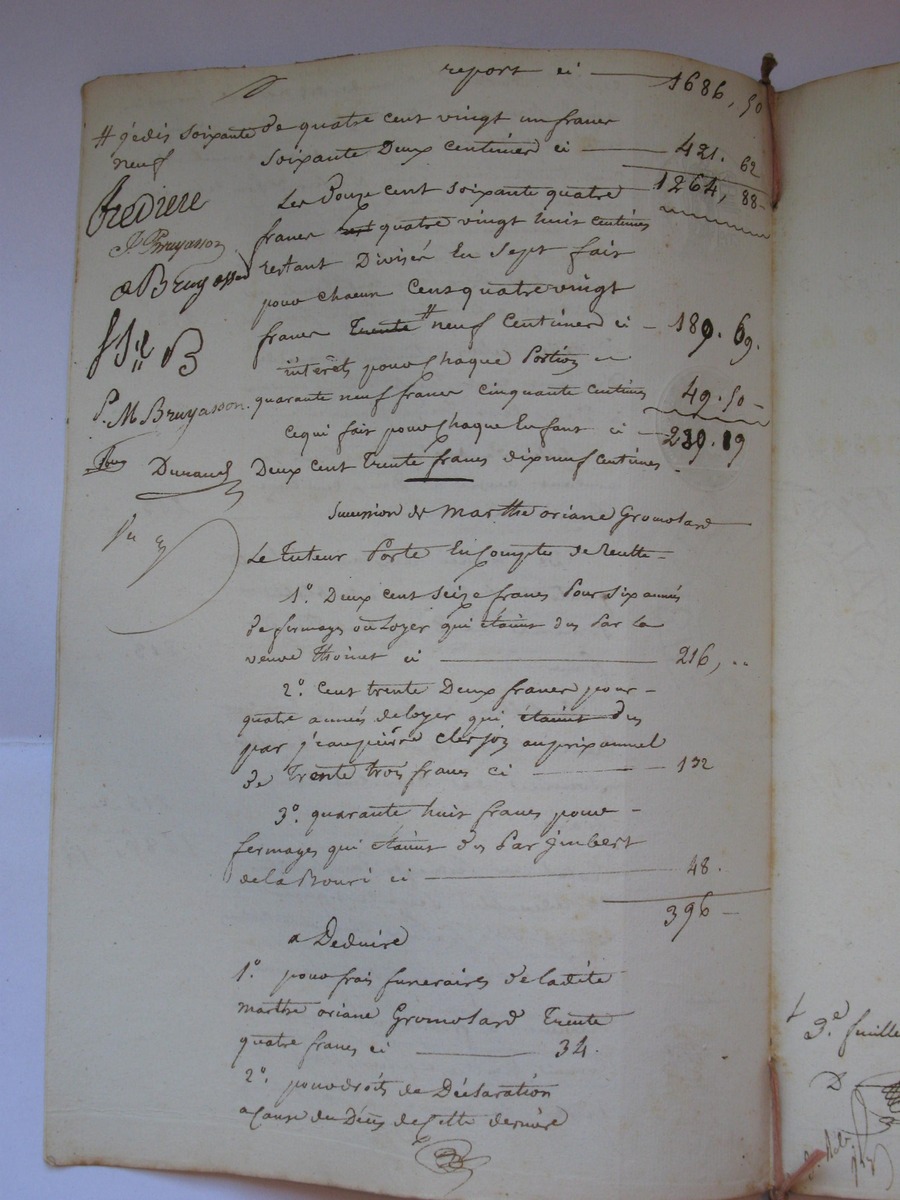 report ci 1686, 50
# je dis soixante
neuf
de quatre cent vingt un francs
soixante Deux centimes ci 421. 62
1264, 88
Les Douze cent soixante quatre
francs quatre vingt huit centimes
restant Divisés En sept fait
pour chacun Cent quatre vingt
francs Trente # neuf Centimes ci 189. 69.
intérêts pour chaque Portion
quarante neuf francs cinquante centimes 49. 50
ce qui fait pour chaque Enfant ci 239. 19
Deux cent Trente francs dix neuf centimes
J. Bruyasson
a Bruyasson
P. M Bruyasson
Durand
Succession de marthe oriane Gromolard
Le Tuteur Porte En Compte de Recette
1º. Deux cent seize francs Pour six années
de fermages ou Loyer qui étaient dus Par la
veuve Thoinet ci 216, ..
2º. Cent trente Deux francs pour
quatre années de loyer qui étaient dus
par jean pierre au prix annuel
de Trente trois francs ci 132
3º. quarante huit francs pour
fermages qui étaient dus Par jmbert
de la ci 48.
396
a Deduire
1º. pour frais funeraires de ladite
marthe oriane Gromolard Trente
quatre francs ci 34.
2º. pour droits de Déclaration
a Cause du Décès de cette dernière
3.e feuille